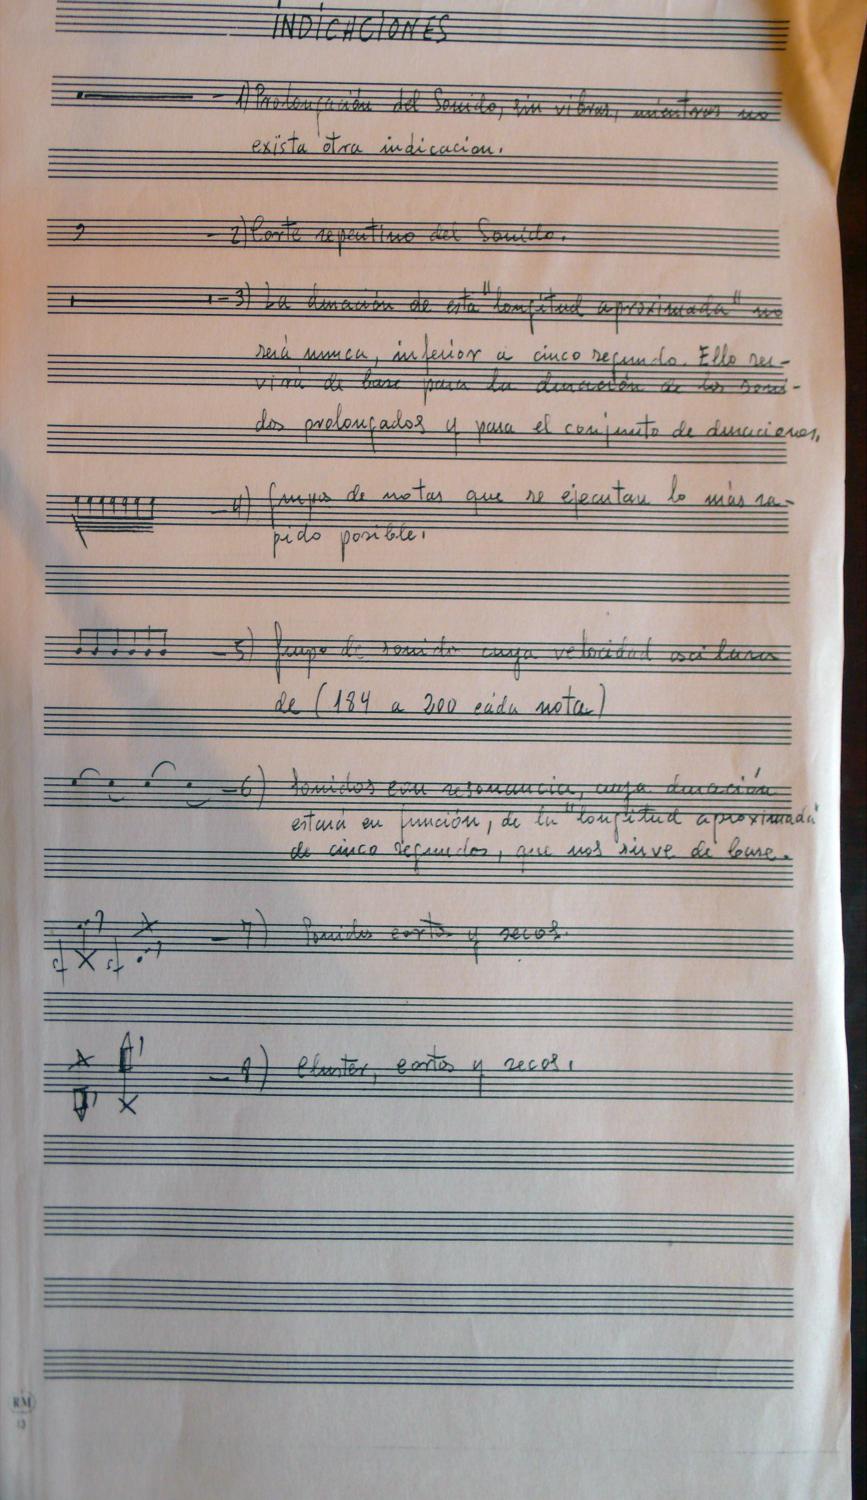 INDICACIONES
- 1) Prolongación del Sonido, sin vibrar, mientras no
exista otra indicacion.
- 2) Corte repentino del Sonido.
- 3) La duración de esta "longitud aproximada" no
será nunca, inferior a cinco segundo. Ello ser-
virá de base para la duración de los soni-
dos prolongados y para el conjunto de duraciones.
- 4) Grupos de notas que se ejecutan lo más ra-
pido posible.
- 5) Grupo de sonido cuya velocidad oscilara
de (184 a 200 cada nota)
- 6) Sonidos con resonancia, cuya duración
estará en función, de la "longitud aproximada"
de cinco segundos, que nos sirve de base.
- 7) Sonidos cortos y secos.
- 8) Cluster, cortos y secos.
RM